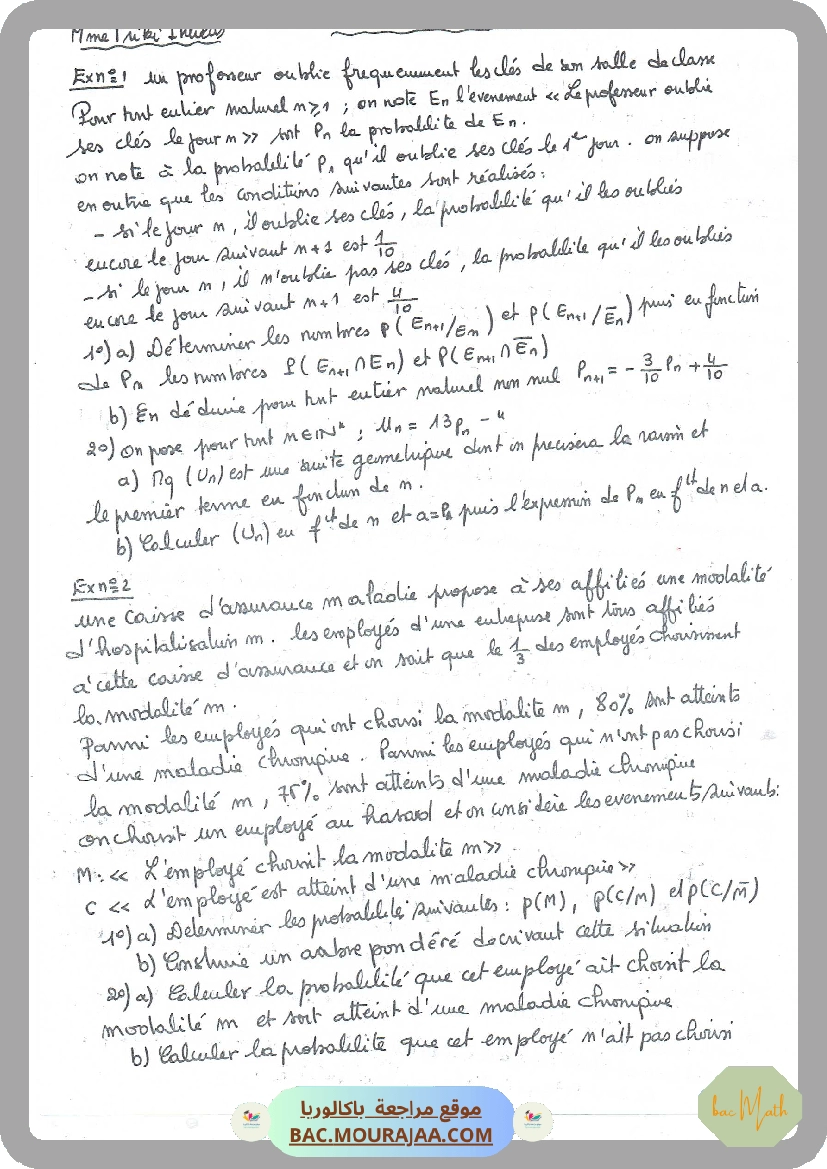 Mme Triki Ihcen
Exn°1 un professeur oublie frequemment les clés de son salle de classe
Pour tout entier naturel n≥1 ; on note En l'évenement << Le professeur oublie
ses clés le jour n >> soit Pn la probabilite de En.
on note a la probabilité P1 qu'il oublie ses clés le 1er jour . on suppose
en outre que les conditions suivantes sont réalisés :
- si le jour n , il oublie ses clés , la probabilité qu'il les oubliés
encore le jour suivant n+1 est 1/10
- si le jour n , il n'oublie pas ses clés , la probabilite qu'il les oubliés
encore le jour suivant n+1 est 4/10
1°) a) Déterminer les nombres p( En+1/En ) et p( En+1 / E̅n ) puis en fonction
de Pn les nombres P( En+1 ∩ En ) et P( En+1 ∩ E̅n )
b) En déduire pour tout entier naturel non nul Pn+1 = - 3/10 Pn + 4/10
2°) On pose pour tout n∈IN* ; Un = 13Pn - 4
a) Mq (Un) est une suite geometrique dont on precisera la raison et
le premier terme en fonction de n .
b) Calculer (Un) en fct de n et a=P1 puis l'expression de Pn en fct de n et a.
Exn°2
une caisse d'assurance maladie propose à ses affiliés une modalité
d'hospitalisation m . les employés d'une entreprise sont tous affiliés
à cette caisse d'assurance et on sait que le 1/3 des employés choisissent
la modalité m .
Parmi les employés qui ont choisi la modalite m , 80% sont atteints
d'une maladie chronique . Parmi les employés qui n'ont pas choisi
la modalité m , 75% sont atteints d'une maladie chronique
on choisit un employé au hasard et on considère les evenements suivants :
M : << L'employé choisit la modalite m >>
C << L'employé est atteint d'une maladie chronique >>
1°) a) Determiner les probabilités suivantes : p(M) , p(C/M) et p(C/M̅)
b) Construire un arabre pondéré decrivant cette situation
2°) a) Calculer la probabilité que cet employé ait choisit la
modalité m et soit atteint d'une maladie chronique
b) Calculer la probabilite que cet employé n'ait pas choisi
موقع مراجعة باكالوريا
BAC.MOURAJAA.COM
bac Math